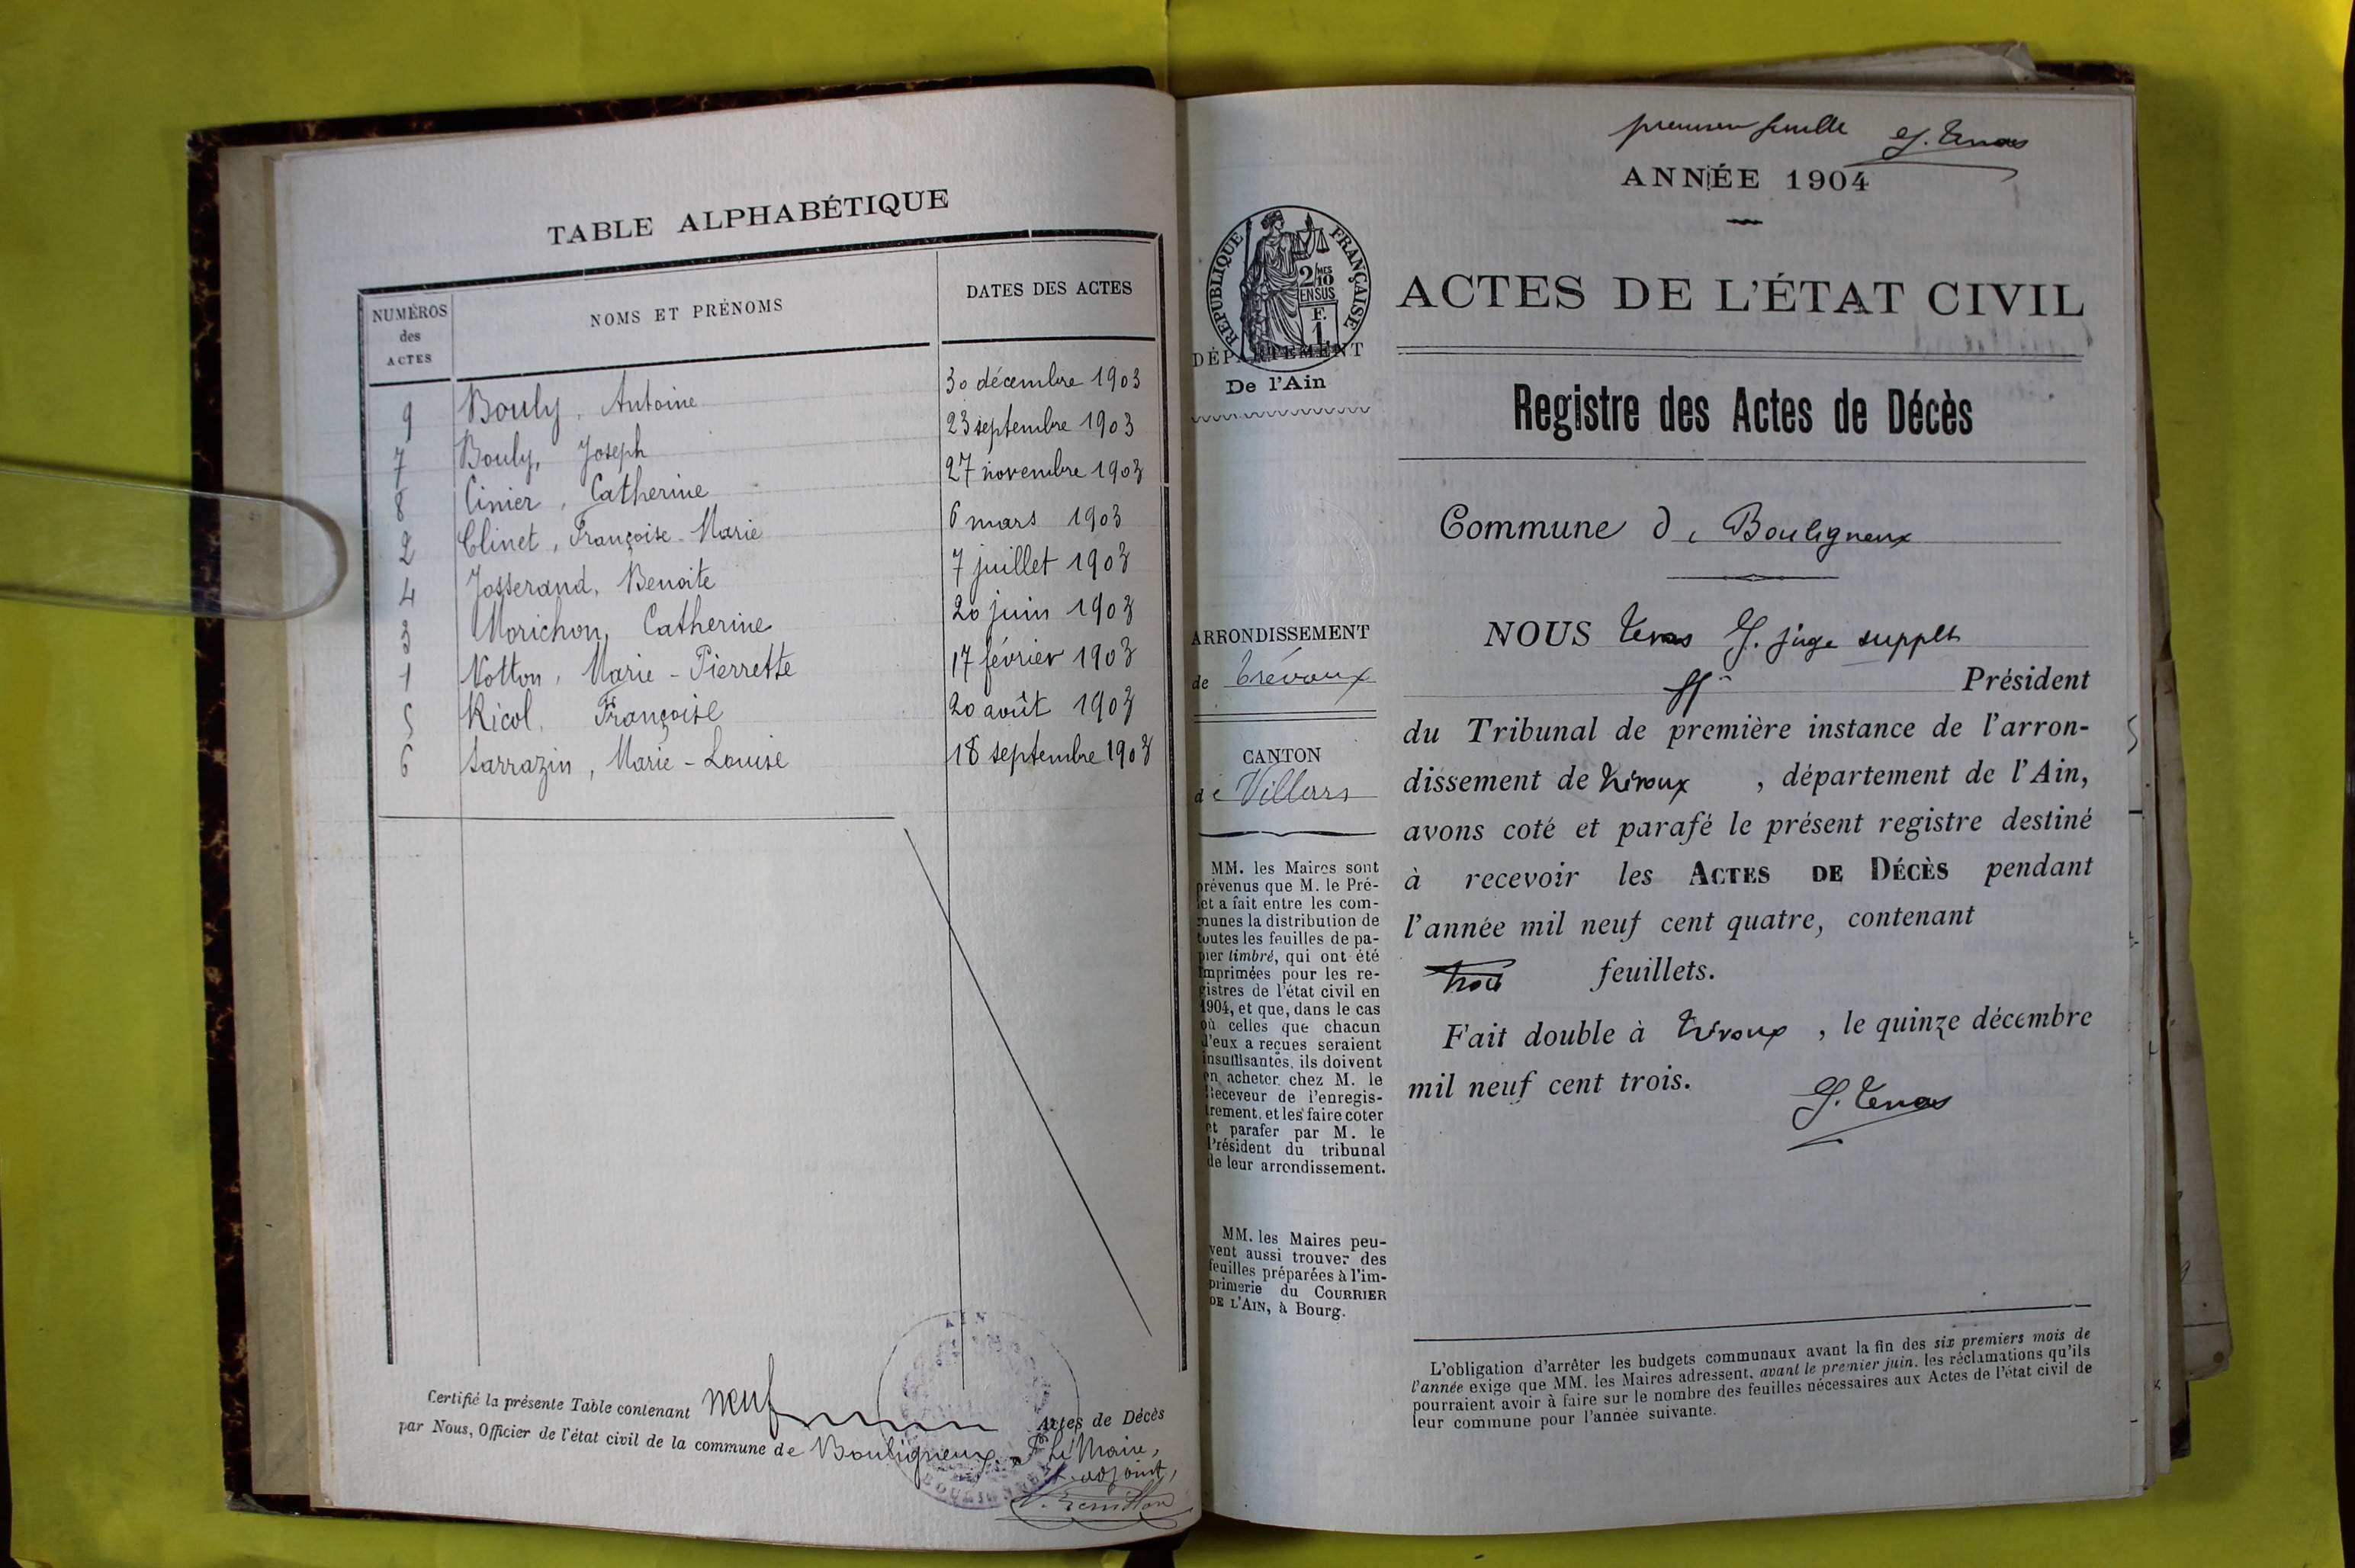 TABLE ALPHABÉTIQUE
NUMÉROS des ACTES NOMS ET PRÉNOMS DATES DES ACTES
9 Bouly, Antoine 30 décembre 1903
7 Bouly, Joseph 23 septembre 1903
8 Cinier, Catherine 27 novembre 1903
2 Clinet, Françoise-Marie 6 mars 1903
4 Josserand, Benoite 7 juillet 1903
3 Morichon, Catherine 20 juin 1903
1 Notton, Marie-Pierrette 17 février 1903
5 Ricol, Françoise 20 août 1903
6 Sarrazin, Marie-Louise 18 septembre 1903
Certifié la présente Table contenant neuf Actes de Décès
par Nous, Officier de l'état civil de la commune de Bouligneux
Le Maire,
adjoint,
AIN
ANNÉE 1904
RÉPUBLIQUE FRANÇAISE
2/10 MES
EN SUS
1 F.
DÉPARTEMENT
De l'Ain
ARRONDISSEMENT
de Trévoux
CANTON
de Villars
MM. les Maires sont
prévenus que M. le Pré-
fet a fait entre les com-
munes la distribution de
toutes les feuilles de pa-
pier timbré, qui ont été
imprimées pour les re-
gistres de l'état civil en
1904, et que, dans le cas
où celles que chacun
d'eux a reçues seraient
insuffisantes, ils doivent
en acheter chez M. le
Receveur de l'enregis-
trement, et les faire coter
et parafer par M. le
Président du tribunal
de leur arrondissement.
MM. les Maires peu-
vent aussi trouver des
feuilles préparées à l'im-
primerie du COURRIER
DE L'AIN, à Bourg.
ACTES DE L'ÉTAT CIVIL
Registre des Actes de Décès
Commune de Bouligneux
NOUS juge supplt
Président
du Tribunal de première instance de l'arron-
dissement de Trévoux, département de l'Ain,
avons coté et parafé le présent registre destiné
à recevoir les ACTES DE DÉCÈS pendant
l'année mil neuf cent quatre, contenant
trois feuillets.
Fait double à Trévoux, le quinze décembre
mil neuf cent trois.
L'obligation d'arrêter les budgets communaux avant la fin des six premiers mois de
l'année exige que MM. les Maires adressent, avant le premier juin, les réclamations qu'ils
pourraient avoir à faire sur le nombre des feuilles nécessaires aux Actes de l'état civil de
leur commune pour l'année suivante.